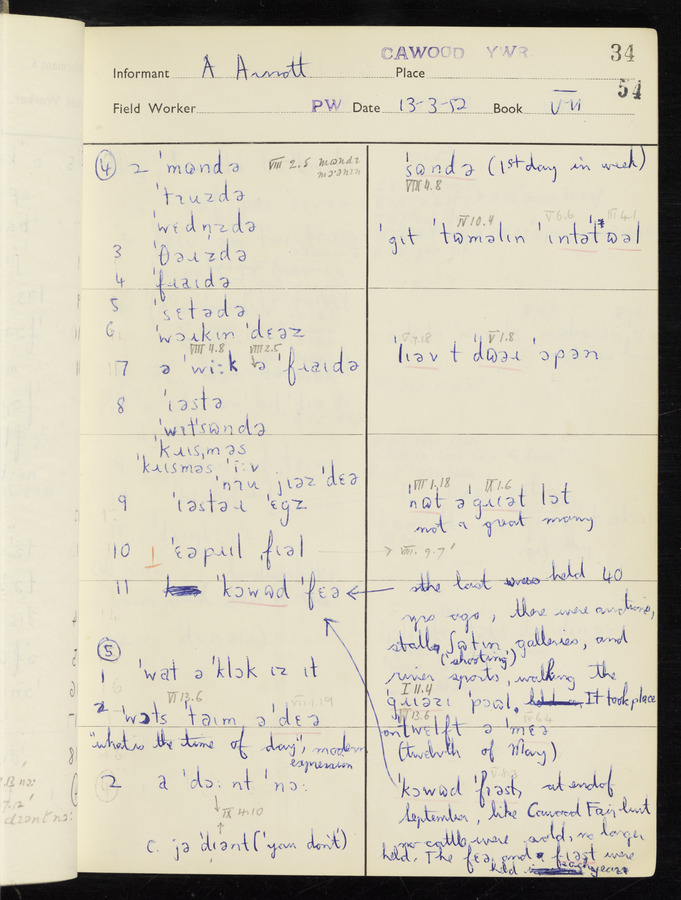 CAWOOD YWR. 34
Informant A Arnott Place
54
Field Worker PW Date 13-3-52 Book V-VI
④ 2 'mɒndə VIII 2.5
'tɪuzdə
'wɛdn̩zdə
3 'θəːzdə
4 'fɹaɪdə
5 'sɛtədə
6 'wəɹkɪn 'dɛəz
VIII 4.8 VIII 2.5
7 ə 'wiːk tə 'fɹaɪdə
8 'ɪəstə
'wɪt'sɒndə
'kɹɪsməs
'kɹɪsməs 'iːv
'nɪu jɪəz 'dɛə
9 'ɪəstəɹ 'ɛgz
10 'ɛəpɹɪl ˌfɪəl
11 'kəwʊd 'fɛə
⑤
1 'wat ə 'klɒk ɪz ɪt
VI 13.6 VIII 1.19
2 'wɔts 'taɪm ə 'dɛə
"what is the time of day", modern
expression
2 a 'dɔː nt 'nɔː
IX 4.10
c. jə 'dɪənt ('you don't)
'sɒndə (1st day in week)
VIII 4.8
IV 10.4 V 6.6 III 4.1
'gɪt 'tɒməlɪn 'ɪntət 'ɒəl
V 7.18 V 1.8
'lɪəv t 'dʊəɹ 'ɔpən
VIII 1.18 IX 1.6
'nɒt ə 'gɹɪət lət
not a great many
VIII. 9.7'
the last held 40
yrs ago, there were auctions,
stalls, ʃətɪn, galleries, and
('shooting')
river sports, walking the
I 11.4
'gɹɪəzɪ 'pɔəl. It took place
VI 13.6 IX 6.4
ont wɛlft ə 'mɛə
(twelfth of May)
'kəwʊd 'fɪəst, at end of
September, like Cawood Fair but
no cattle were sold, no longer
held. The fɛə and fɪəst were
held each year